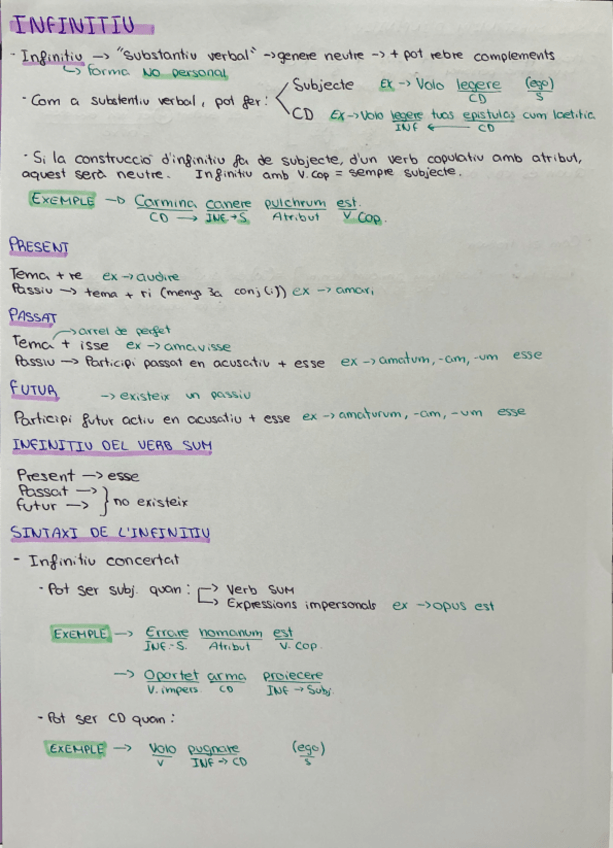 INFINITIU
- Infinitiu → "Substantiu verbal" → genere neutre → + pot rebre complements
↳ forma No personal
- Com a substentiu verbal, pot fer:
Subjecte Ex → Volo legere (ego)
CD S
CD Ex → Volo legere tuas epistulas cum laetitia
INF ← CD
· Si la construcció d'infinitiu fa de subjecte, d'un verb copulatiu amb atribut,
aquest serà neutre. Infinitiu amb V. Cop = sempre subjecte.
EXEMPLE → Carmina canere pulchrum est.
CD → INF → S Atribut V Cop.
PRESENT
Tema + re ex → audire
Passiu → tema + ri (menys 3a conj (i)) ex → amari
PASSAT
→ arrel de perfet
Tema + isse ex → amavisse
Passiu → Participi passat en acusatiu + esse ex → amatum, -am, -um esse
FUTUR → existeix un passiu
Participi futur actiu en acusatiu + esse ex → amaturum, -am, -um esse
INFINITIU DEL VERB SUM
Present → esse
Passat →
futur → } no existeix
SINTAXI DE L'INFINITIU
- Infinitiu concertat
· Pot ser subj. quan: → Verb SUM
↳ Expressions impersonals ex → opus est
EXEMPLE → Errare homanum est
INF.-S. Atribut V. Cop.
→ Oportet arma proiecere
V. impers. CD INF → Subj.
· Pot ser CD quan:
EXEMPLE → Volo pugnare (ego)
V INF → CD S